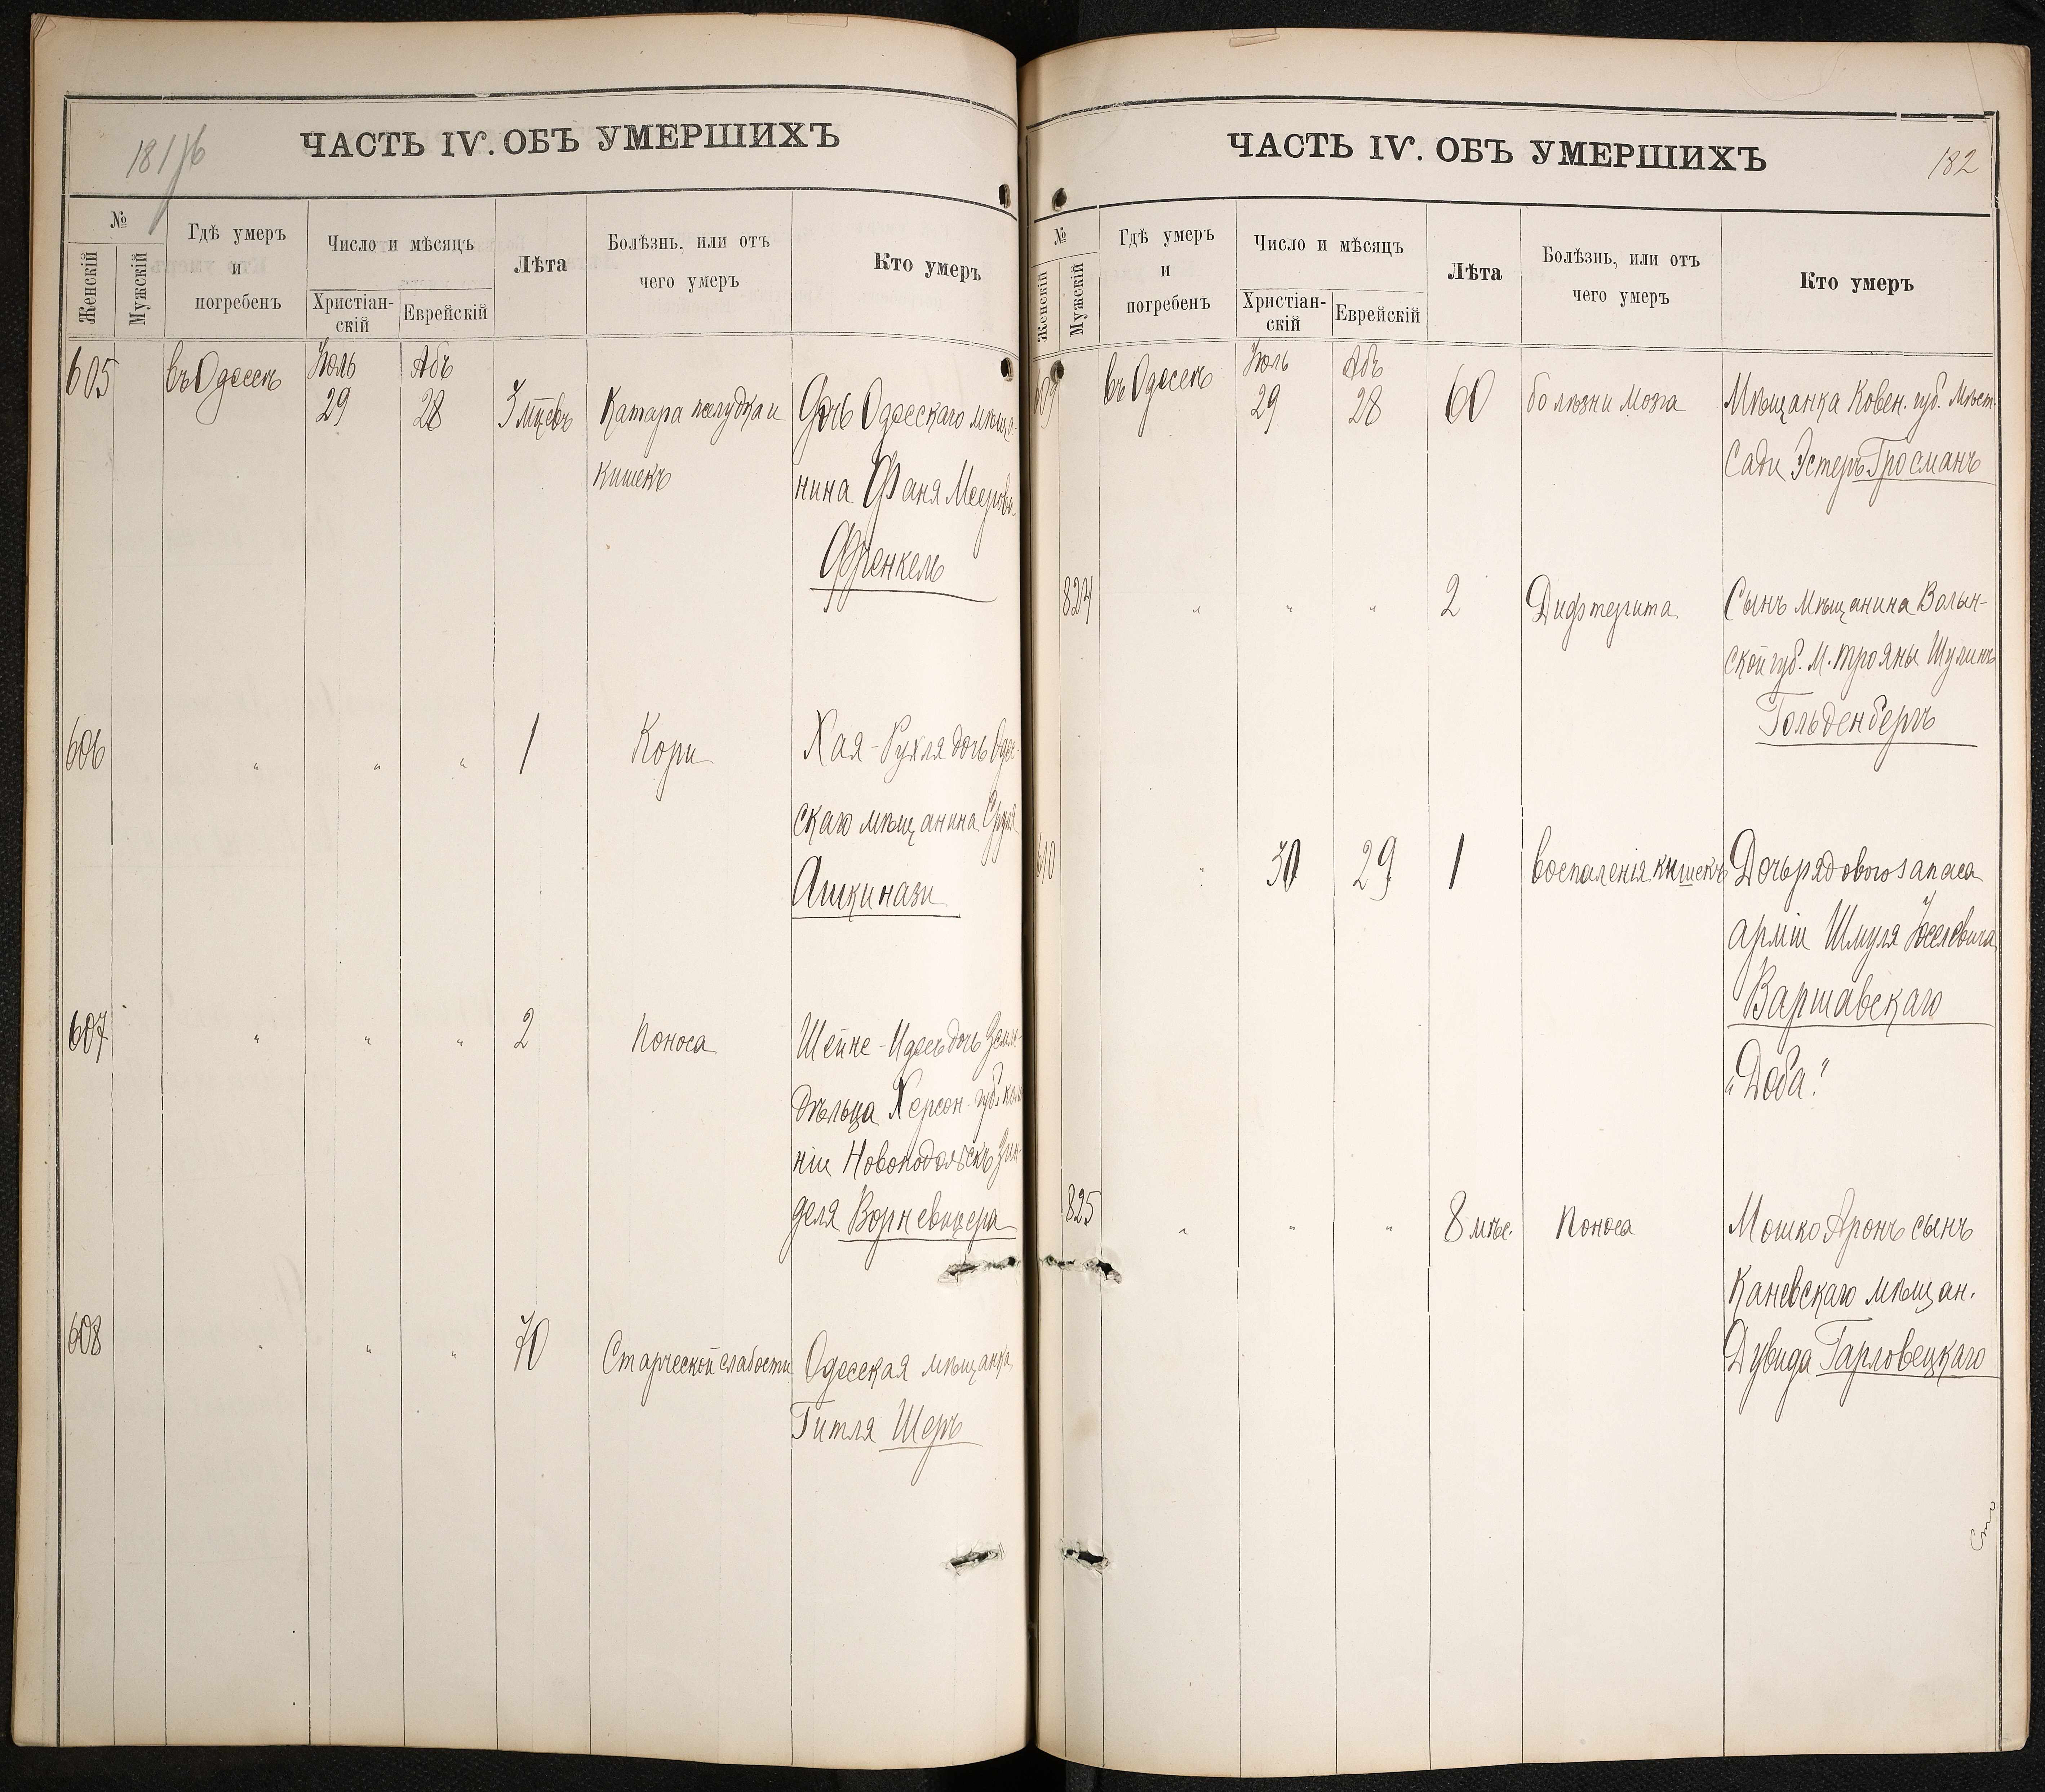 181
ЧАСТЬ IV. ОБЪ УМЕРШИХЪ
№
Женскій
Мужскій
Гдѣ умеръ
и
погребенъ
Число и мѣсяцъ
Христіан-
скій
Еврейскій
Лѣта
Болѣзнь, или отъ
чего умеръ
Кто умеръ
605
въ Одессѣ
Іюль
29
Абъ
28
3 мцевъ
Катара желудка и
кишекъ
Дочь Одесскаго мѣща-
нина Фаня Меерова
Френкель
606
" " "
1
Кори
Хая-Рухля дочь Одес-
скаго мѣщанина Сруля
Ашкинази
607
" " "
2
Поноса
Шейне-Идесъ дочь Земле-
дѣльца Херсон. губ. коло
ніи Новоподольскъ Зин-
деля Ворневицера
608
" " "
70
Старческой слабости
Одесская мѣщанка
Гитля Шеръ
ЧАСТЬ IV. ОБЪ УМЕРШИХЪ
182
№
Женскій
Мужскій
Гдѣ умеръ
и
погребенъ
Число и мѣсяцъ
Христіан-
скій
Еврейскій
Лѣта
Болѣзнь, или отъ
чего умеръ
Кто умеръ
609
въ Одессѣ
Іюль
29
Абъ
28
60
болѣзни мозга
Мѣщанка Ковен. губ. мѣст.
Сади Эстеръ Гросманъ
824
" " "
2
Дифтерита
Сынъ мѣщанина Волын-
ской губ. м. Трояны Шулимъ
Гольденбергъ
610
"
30
29
1
воспаленія кишекъ
Дочь рядового запаса
арміи Шмуля Іоселевича
Варшавскаго
"Доба"
825
" " "
8 мѣс.
Поноса
Мошко Аронъ сынъ
Каневскаго мѣщан.
Дувида Гарловецкаго